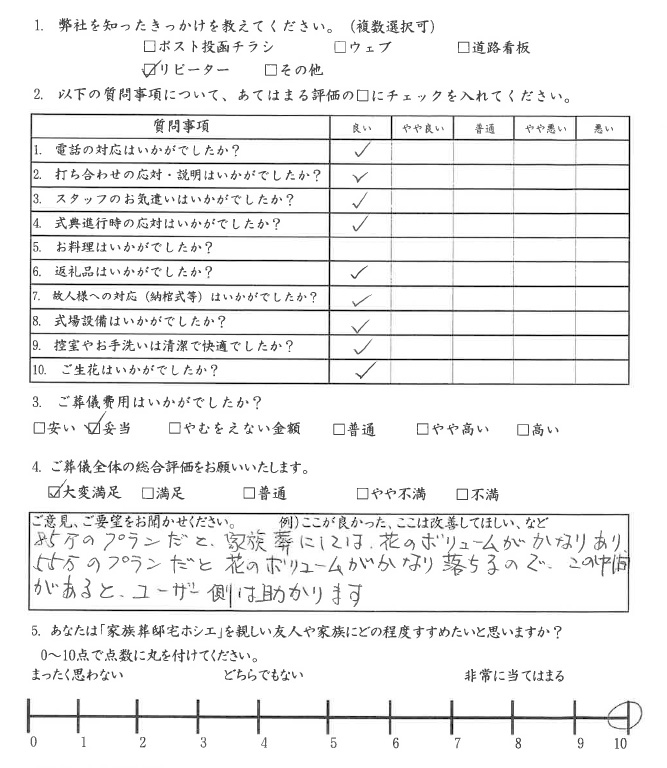 1. 弊社を知ったきっかけを教えてください。(複数選択可)
□ポスト投函チラシ □ウェブ □道路看板
☑リピーター □その他
2. 以下の質問事項について、あてはまる評価の□にチェックを入れてください。
質問事項 良い やや良い 普通 やや悪い 悪い
1. 電話の対応はいかがでしたか? ✓
2. 打ち合わせの応対・説明はいかがでしたか? ✓
3. スタッフのお気遣いはいかがでしたか? ✓
4. 式典進行時の応対はいかがでしたか? ✓
5. お料理はいかがでしたか?
6. 返礼品はいかがでしたか? ✓
7. 故人様への対応(納棺式等)はいかがでしたか? ✓
8. 式場設備はいかがでしたか? ✓
9. 控室やお手洗いは清潔で快適でしたか? ✓
10. ご生花はいかがでしたか? ✓
3. ご葬儀費用はいかがでしたか?
□安い ☑妥当 □やむをえない金額 □普通 □やや高い □高い
4. ご葬儀全体の総合評価をお願いいたします。
☑大変満足 □満足 □普通 □やや不満 □不満
ご意見、ご要望をお聞かせください。 例)ここが良かった、ここは改善してほしい、など
85万のプランだと、家族葬にしては、花のボリュームがかなりあり、
55万のプランだと花のボリュームがかなり落ちるので、この中間
があると、ユーザー側は助かります
5. あなたは「家族葬邸宅ホシエ」を親しい友人や家族にどの程度すすめたいと思いますか?
0～10点で点数に丸を付けてください。
まったく思わない どちらでもない 非常に当てはまる
0 1 2 3 4 5 6 7 8 9 10